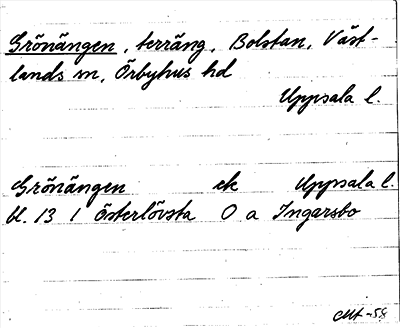 Grönängen, terräng, Bolstan, Väst-
lands sn, Örbyhus hd
Uppsala l.
Grönängen ek Uppsala l.
bl. 13 1 Österlövsta O a Ingarsbo
-58